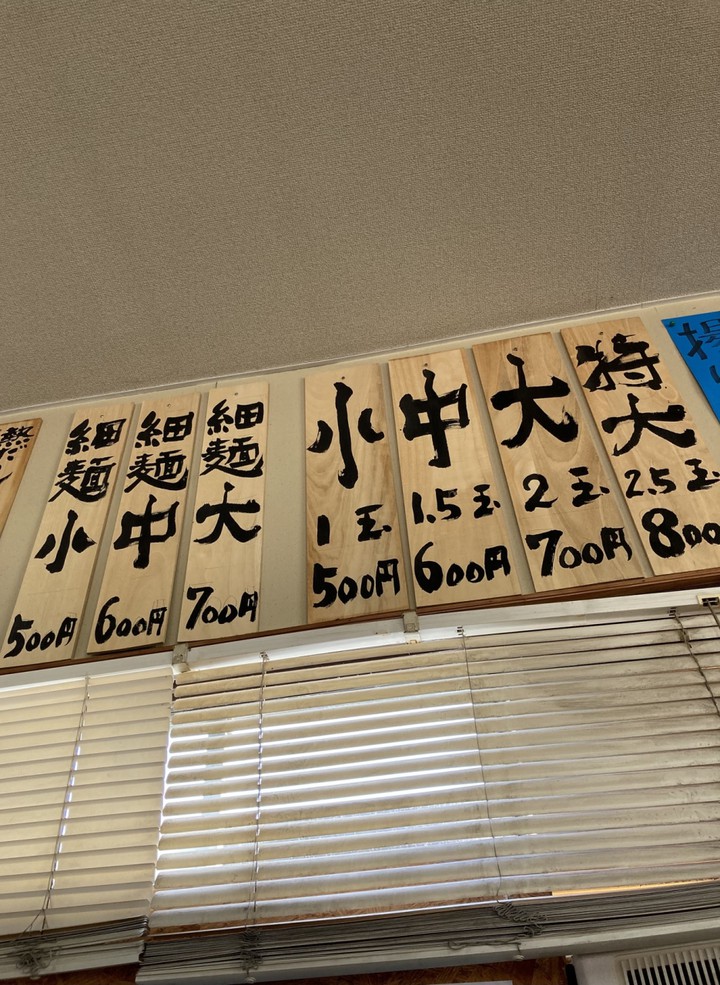 細麺小
500円
細麺中
600円
細麺大
700円
小
1玉
500円
中
1.5玉
600円
大
2玉
700円
特大
2.5玉
800